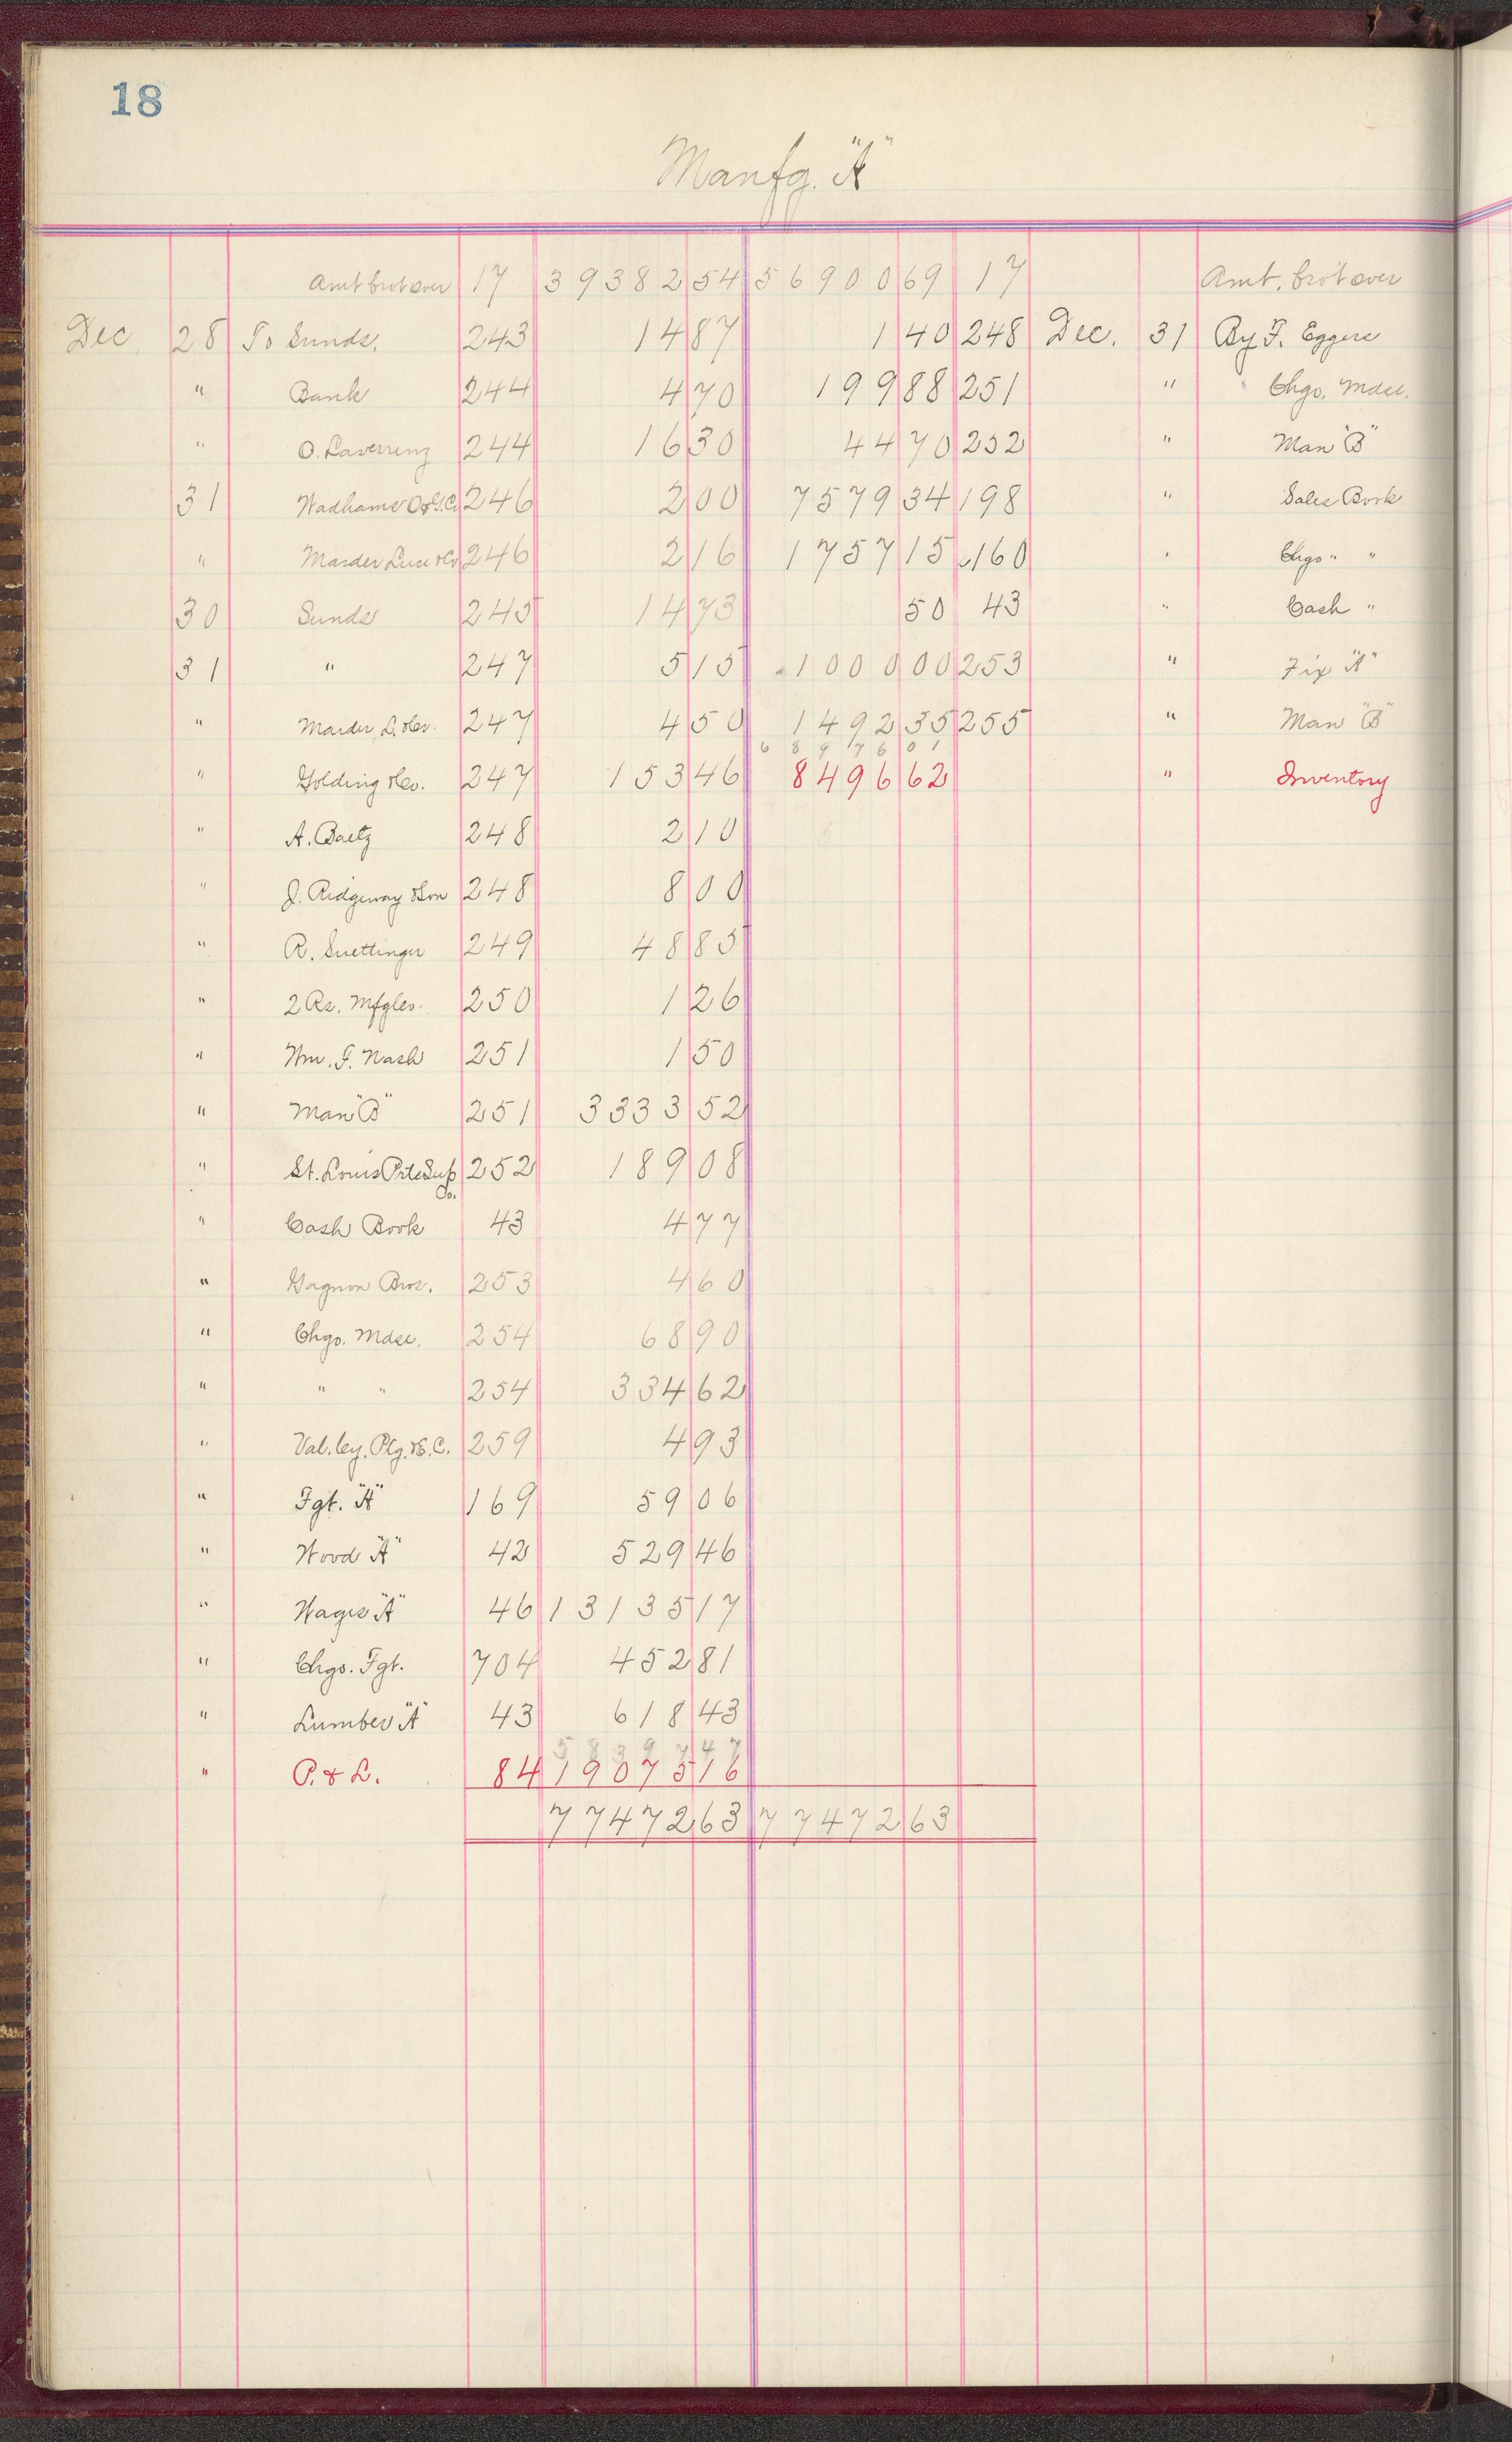 18
Manfg. "A"
Amt brot over 17 39382 54 56900 69 17 Amt. brot over
Dec 28 To Sunds. 243 14 87 1 40 248 Dec. 31 By F. Eggers
" Bank 244 4 70 199 88 251 " Chgo. Mdse.
" O. Laverrenz 244 16 30 44 70 252 " Man "B"
31 Wadhams O&G.C. 246 2 00 7579 34 198 " Sales Book
" Marder Luse &Co 246 2 16 1757 15 160 " Chgo " "
30 Sunds 245 14 73 50 43 " Cash "
31 " 247 5 15 1000 00 253 " Fix "A"
" Marder, L. &Co. 247 4 50 1492 35 255 " Man "B"
6 8 9 7 6 0 1
" Golding &Co. 247 153 46 8496 62 " Inventory
" A. Baetz 248 2 10
" J. Ridgeway &Son 248 8 00
" R. Suettinger 249 48 85
" 2 Rs. Mfg Co. 250 1 26
" Wm. F. Nash 251 1 50
" Man "B" 251 3333 52
" St. Louis Prtr Sup Co. 252 189 08
" Cash Book 43 4 77
" Gagnon Bros. 253 4 60
" Chgo. Mdse. 254 68 90
" " " 254 334 62
" Val. Cy. Plg. &C. 259 4 93
" Fgt. "A" 169 59 06
" Wood "A" 42 529 46
" Wages "A" 46 13135 17
" Chgo. Fgt. 704 452 81
" Lumber "A" 43 618 43
5 8 3 9 7 4 7
" P. & L. 84 19075 16
77472 63 77472 63